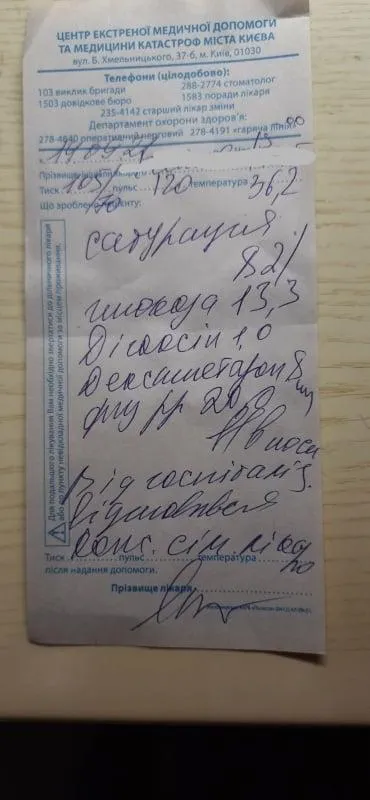 ЦЕНТР ЕКСТРЕНОЇ МЕДИЧНОЇ ДОПОМОГИ
ТА МЕДИЦИНИ КАТАСТРОФ МІСТА КИЄВА
вул. Б. Хмельницького, 37-б, м. Київ, 01030
Телефони (цілодобово):
103 виклик бригади 288-2774 стоматолог
1503 довідкове бюро 1583 поради лікаря
235-4142 старший лікар зміни
Департамент охорони здоров'я:
278-4640 оперативний черговий 278-4191 «гаряча лінія»
Прізвище
Тиск пульс 120 температура 36,2
Що зроблено пацієнту:
сатурація
82%
глюкоза 13,3
Дігоксін 1,0
Дексаметазон 8 мг
фіз рр 20,0
Від госпіталіз.
відмовився
Конс. сім. лікар
Тиск пульс температура
після надання допомоги.
Прізвище лікаря
Для подальшого лікування Вам необхідно звернутися до дільничного лікаря
або до пункту невідкладної медичної допомоги за місцем проживання.